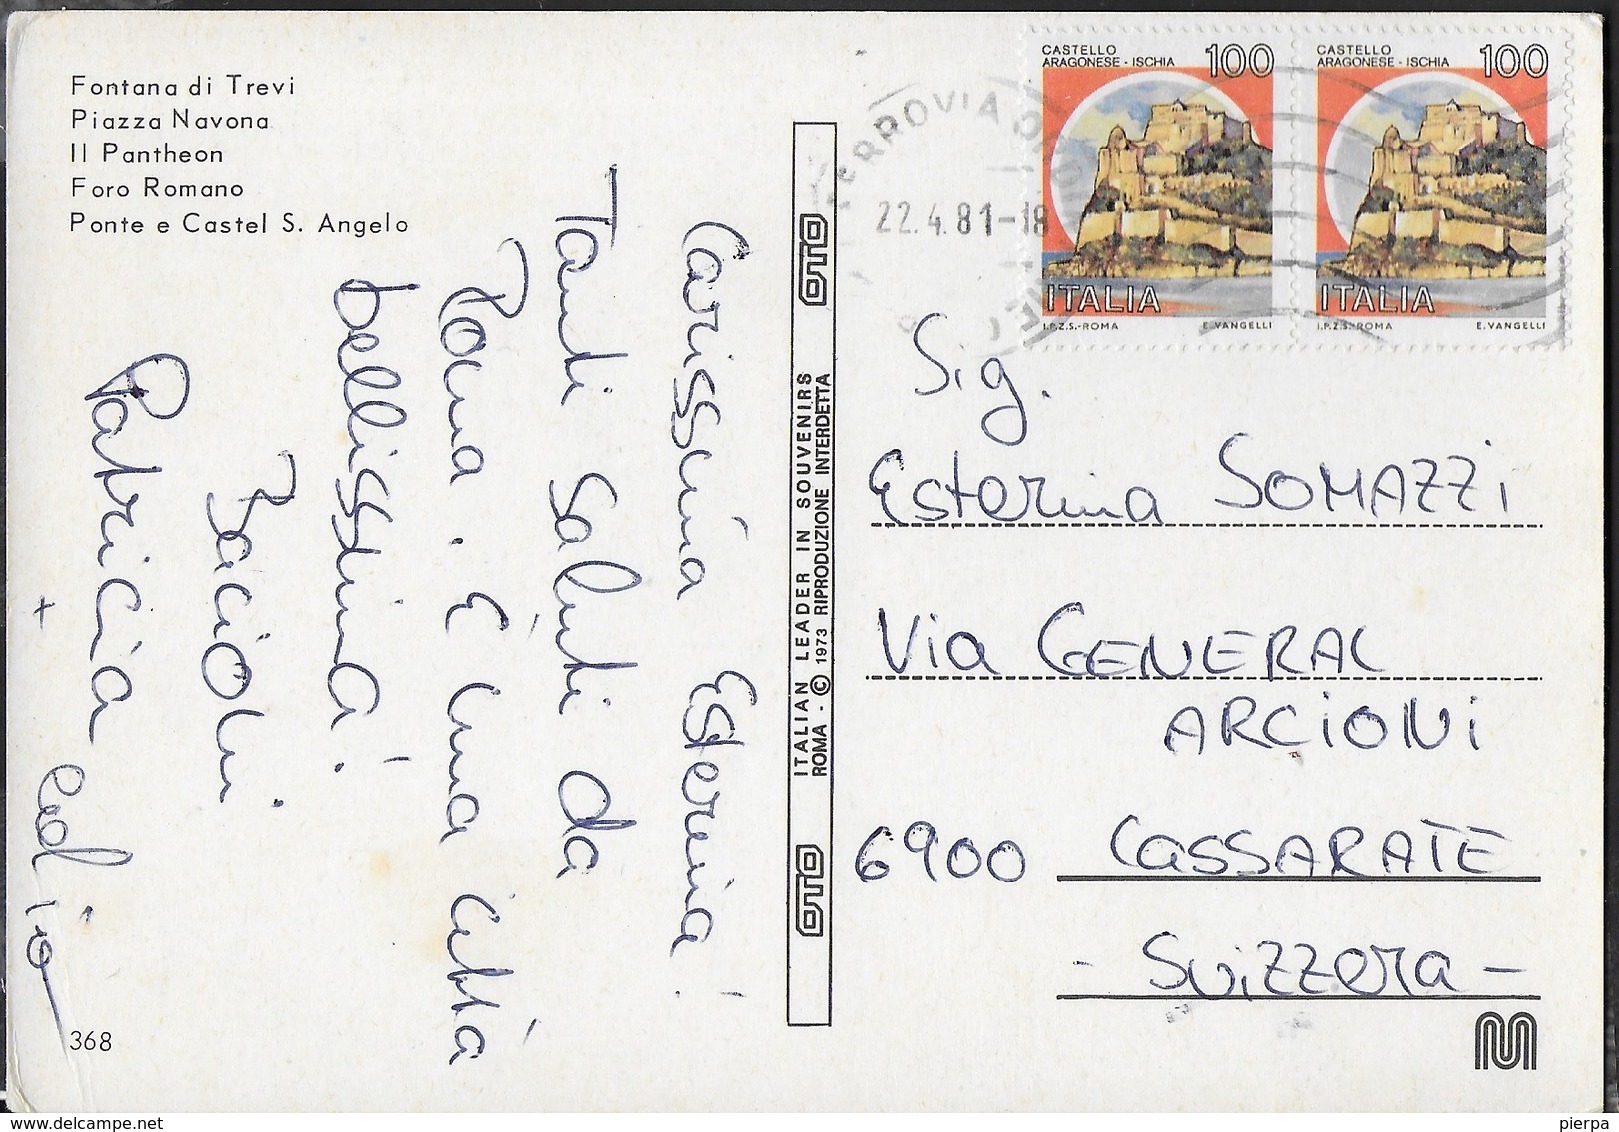 Fontana di Trevi
Piazza Navona
Il Pantheon
Foro Romano
Ponte e Castel S. Angelo
Carissima Esterina!
Tanti saluti da
Roma. È una città
bellissima!
Bacioni
Patricia
+ ed
368
OTO
ITALIAN LEADER IN SOUVENIRS
ROMA - © 1973 RIPRODUZIONE INTERDETTA
OTO
FERROVIA
22.4.81-18
CASTELLO
ARAGONESE - ISCHIA 100
ITALIA
I.P.Z.S.-ROMA E. VANGELLI
CASTELLO
ARAGONESE - ISCHIA 100
ITALIA
I.P.Z.S.-ROMA E. VANGELLI
Sig.
Esterina SOMAZZi
Via GENERAL
ARCiONi
6900 CASSARATE
- Svizzera -
M
pierpa